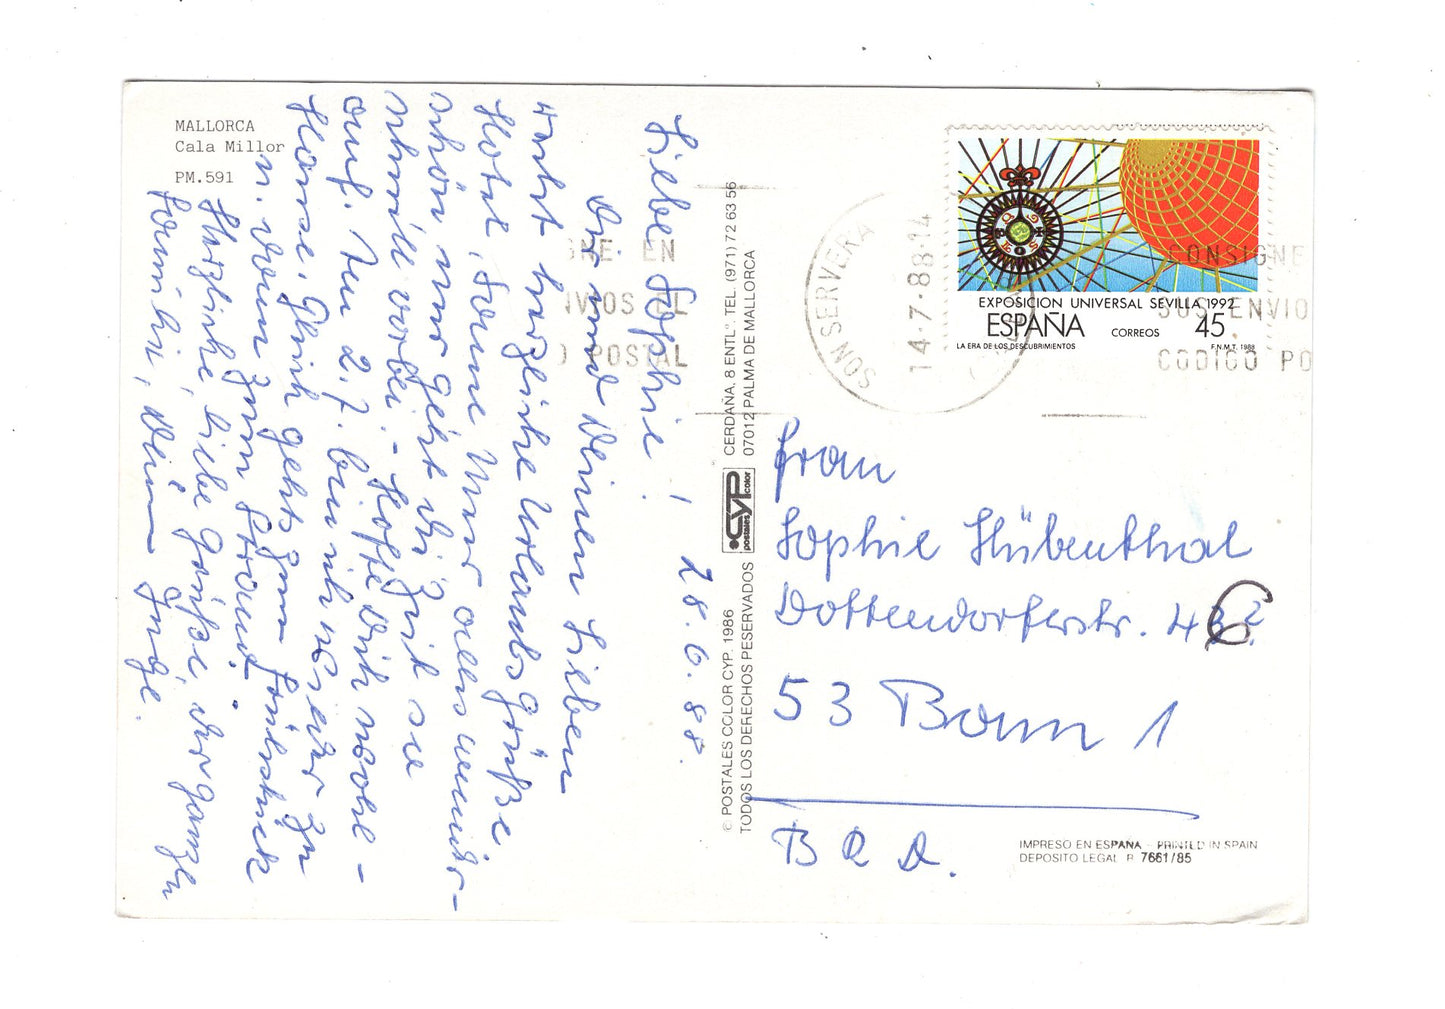 MALLORCA
Cala Millor
PM.591
28.6.88.
Liebe Sophie!
Dir und Deinen Lieben
herzliche Urlaubsgrüße.
Hotel, Sonne Meer alles wunder-
schön, nur geht die Zeit so
schnell vorbei. - Hoffe Dich wohl-
auf. Am 2.7. bin ich wieder zu
Hause. Gleich gehts zum Frühstück
u. dann zum Strand.
Herzliche liebe Grüße der ganzen
Familie, Deine
© POSTALES COLOR CYP. 1986
TODOS LOS DERECHOS PESERVADOS
CYP
postales color
CERDAÑA, 8 ENTLº. TEL. (971) 72 63 56
07012 PALMA DE MALLORCA
GNE. EN
NVIOS EL
O POSTAL
SON SERVERA
14·7·88 14
EXPOSICION UNIVERSAL SEVILLA 1992
ESPAÑA CORREOS 45
LA ERA DE LOS DESCUBRIMIENTOS F.N.M.T. 1988
CONSIGNE
SUS ENVIO
CODIGO PO
Frau
Sophie Hübenthal
Dottendorferstr.
53 Bonn 1
BRD.
IMPRESO EN ESPAÑA - PRINTED IN SPAIN
DEPOSITO LEGAL B 7661/85